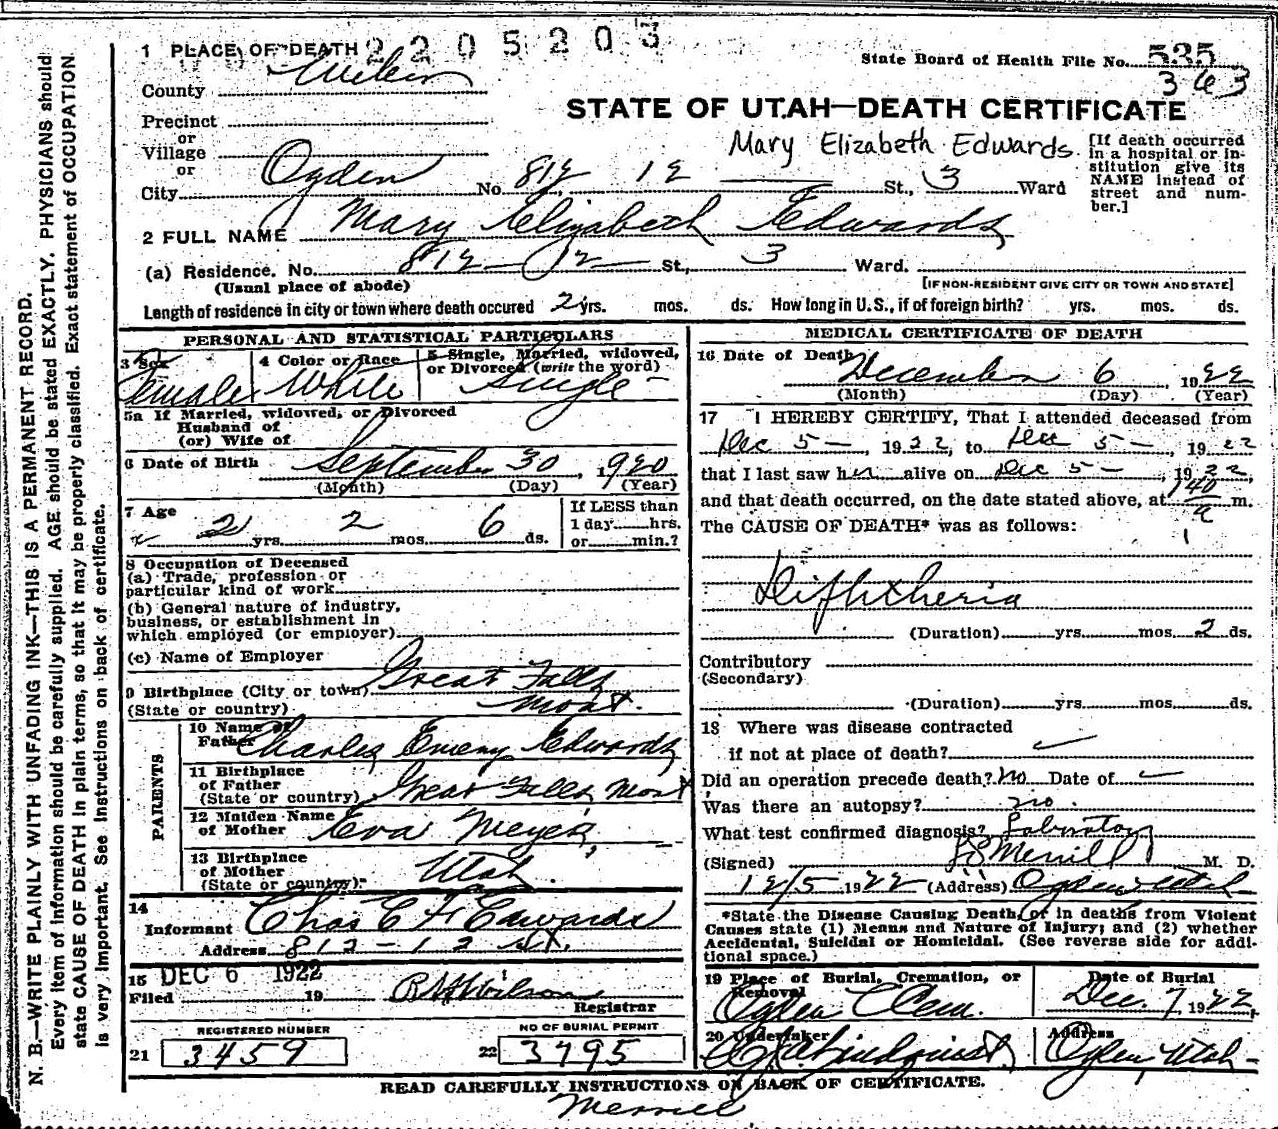 2205203
1 PLACE OF DEATH
State Board of Health File No. 535
363
County Weber
STATE OF UTAH—DEATH CERTIFICATE
Precinct
or
Village
or
Mary Elizabeth Edwards.
[If death occurred in a hospital or institution give its NAME instead of street and number.]
City Ogden No. 812 12 St., 3 Ward
2 FULL NAME Mary Elizabeth Edwards
(a) Residence. No. 812 - 12 - St., 3 Ward.
(Usual place of abode) [IF NON-RESIDENT GIVE CITY OR TOWN AND STATE]
Length of residence in city or town where death occured 2 yrs. mos. ds. How long in U.S., if of foreign birth? yrs. mos. ds.
PERSONAL AND STATISTICAL PARTICULARS
3 Sex Female
4 Color or Race White
5 Single, Married, widowed, or Divorced (write the word) Single
5a If Married, widowed, or Divorced
Husband of
(or) Wife of
6 Date of Birth September 30, 1920
(Month) (Day) (Year)
7 Age 2 yrs. 2 mos. 6 ds.
If LESS than
1 day hrs.
or min.?
8 Occupation of Deceased
(a) Trade, profession or
particular kind of work
(b) General nature of industry,
business, or establishment in
which employed (or employer)
(c) Name of Employer
9 Birthplace (City or town) Great Falls
(State or country) Mont.
PARENTS
10 Name of Father Charles Emery Edwards
11 Birthplace
of Father
(State or country) Great Falls Mont
12 Maiden Name
of Mother Eva Meyer
13 Birthplace
of Mother
(State or country) Utah.
14
Informant Chas E Edwards
Address 812 - 12 st.
15 DEC 6 1922
Filed 19 R Wilson
Registrar
REGISTERED NUMBER
21 3459
NO OF BURIAL PERMIT
22 3795
MEDICAL CERTIFICATE OF DEATH
16 Date of Death December 6, 1922
(Month) (Day) (Year)
17 I HEREBY CERTIFY, That I attended deceased from
Dec 5 - 1922, to Dec 5 - 1922
that I last saw her alive on Dec 5 - 1922,
and that death occurred, on the date stated above, at 140 a m.
The CAUSE OF DEATH* was as follows:
Diphtheria
(Duration) yrs. mos. 2 ds.
Contributory
(Secondary)
(Duration) yrs. mos. ds.
18 Where was disease contracted
if not at place of death?
Did an operation precede death? No Date of
Was there an autopsy? no.
What test confirmed diagnosis? Laboratory
(Signed) Merrill M. D.
12/5 1922 (Address) Ogden Utah
*State the Disease Causing Death, or in deaths from Violent
Causes state (1) Means and Nature of Injury; and (2) whether
Accidental, Suicidal or Homicidal. (See reverse side for additional space.)
19 Place of Burial, Cremation, or Removal Ogden Cem.
Date of Burial Dec. 7, 1922
20 Undertaker Lindquist
Address Ogden, Utah
READ CAREFULLY INSTRUCTIONS ON BACK OF CERTIFICATE.
Merrill
N. B.—WRITE PLAINLY WITH UNFADING INK—THIS IS A PERMANENT RECORD.
Every item of information should be carefully supplied. AGE should be stated EXACTLY. PHYSICIANS should
state CAUSE OF DEATH in plain terms, so that it may be properly classified. Exact statement of OCCUPATION
is very important. See Instructions on back of certificate.